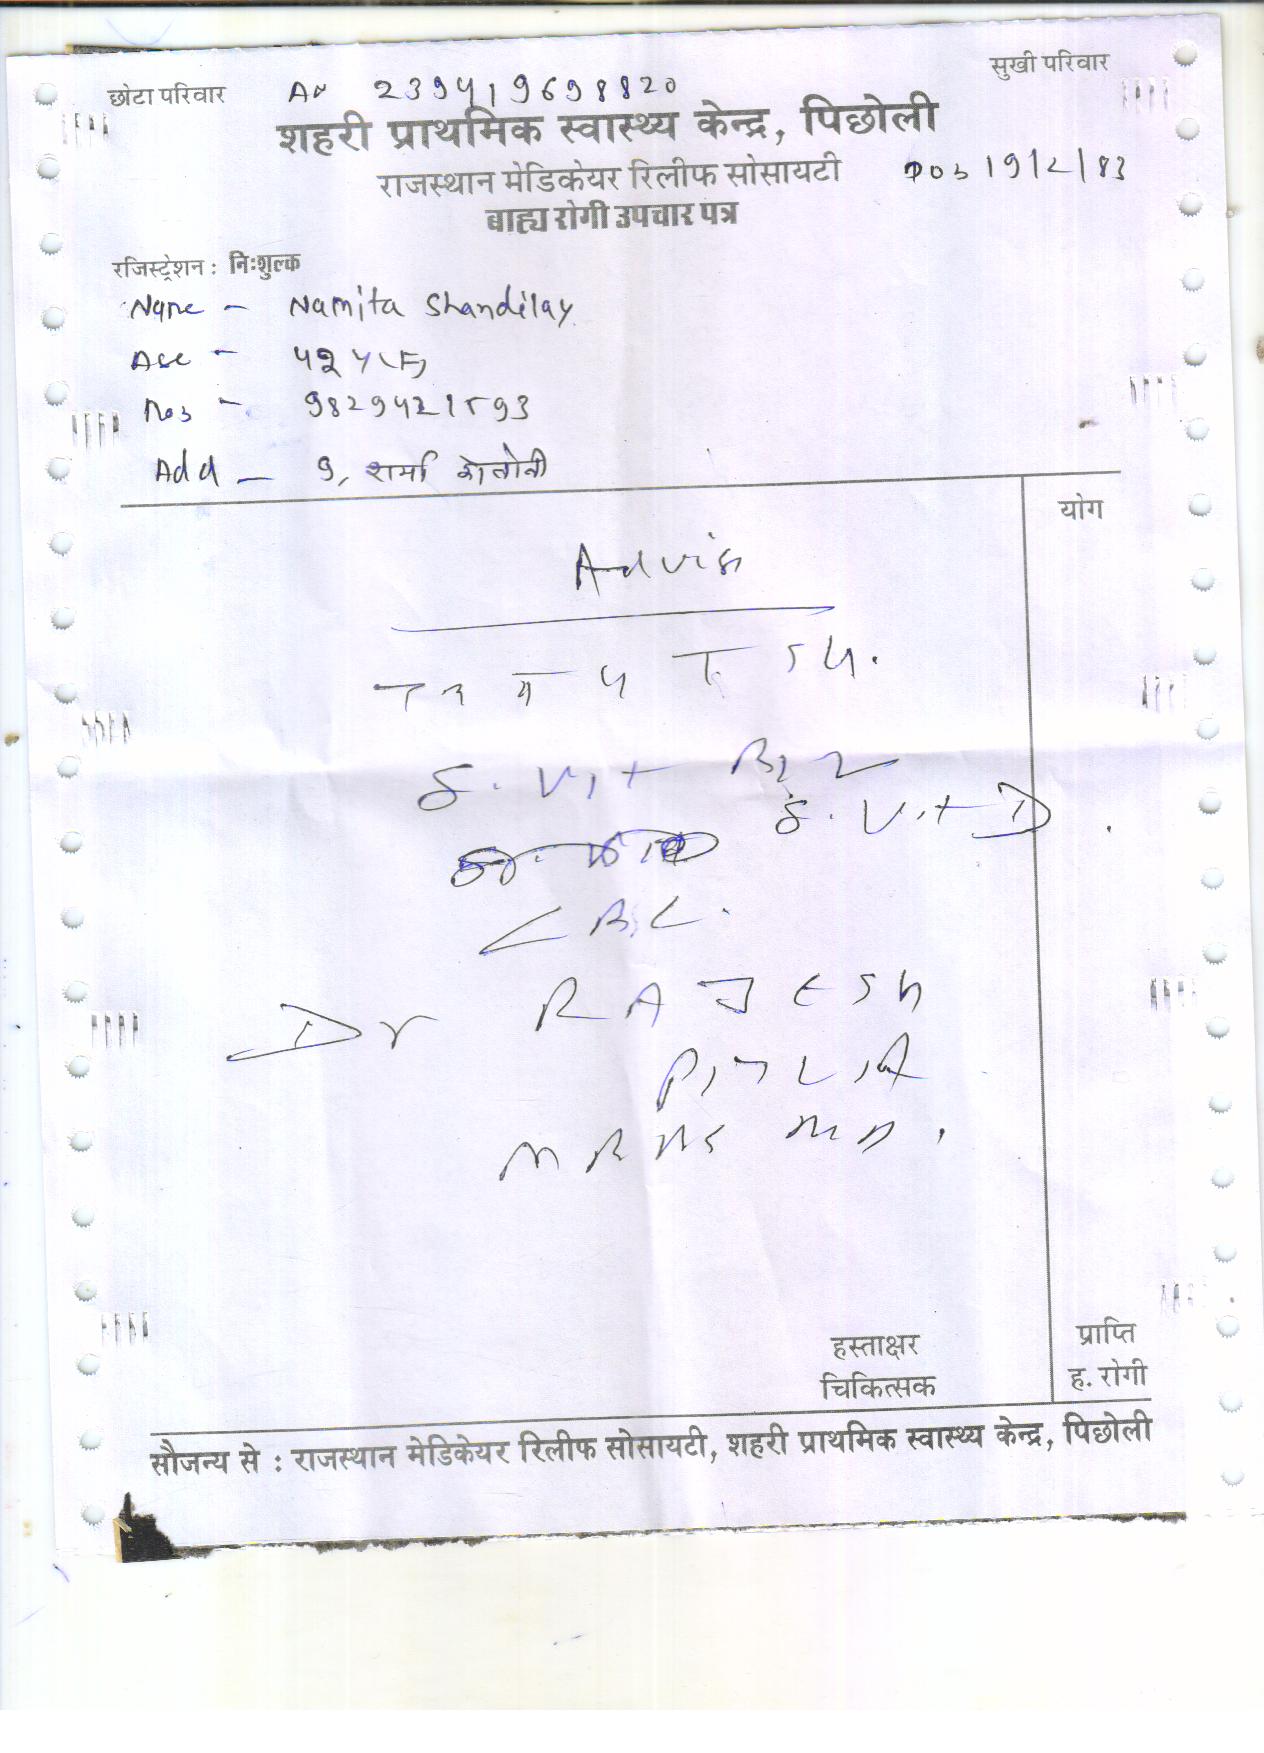 छोटा परिवार
सुखी परिवार
शहरी प्राथमिक स्वास्थ्य केन्द्र, पिछोली
राजस्थान मेडिकेयर रिलीफ सोसायटी DOB 19/2/83
बाह्य रोगी उपचार पत्र
रजिस्ट्रेशन : निःशुल्क
Name - Namita Shandilay
Age -
Mob -
Add - 9, शर्मा कोलोनी
योग
Advis
T3 T4 TSH.
S. Vit B12
S. Vit D.
CBC.
Dr RAJESH
MBBS MD.
हस्ताक्षर
चिकित्सक
प्राप्ति
ह. रोगी
सौजन्य से : राजस्थान मेडिकेयर रिलीफ सोसायटी, शहरी प्राथमिक स्वास्थ्य केन्द्र, पिछोली